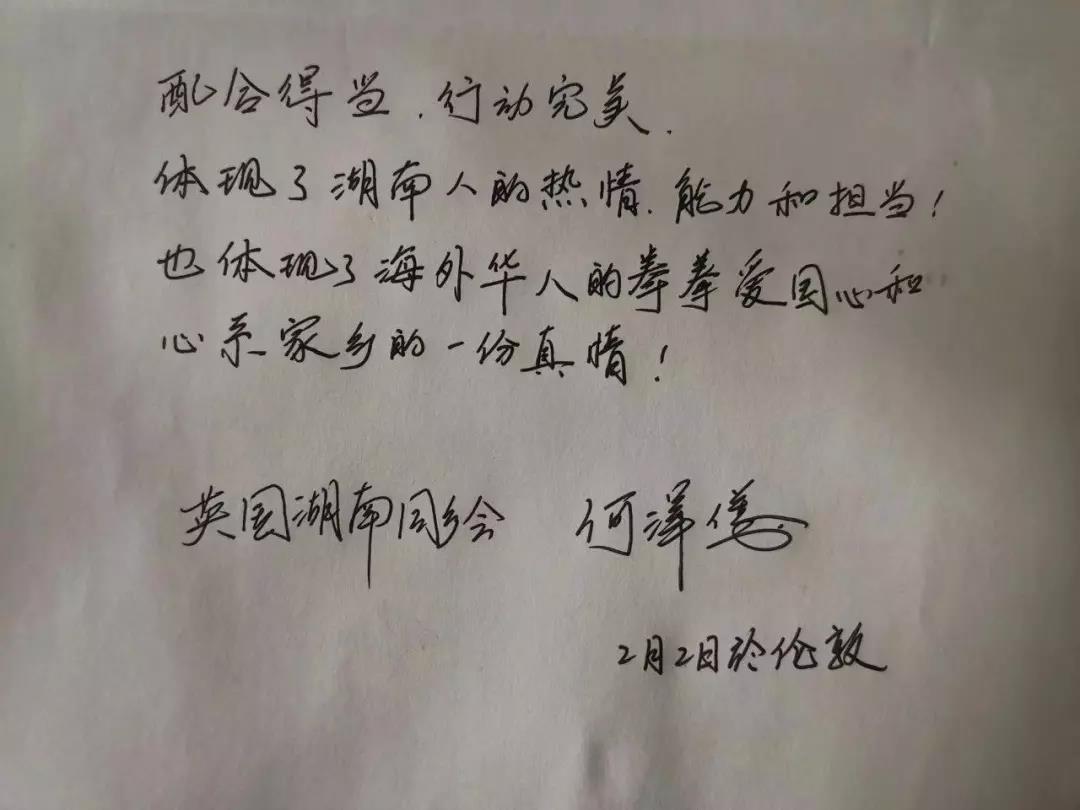 配合得当、行动完美、
体现了湖南人的热情、能力和担当！
也体现了海外华人的拳拳爱国心和
心系家乡的一份真情！
英国湖南同乡会 何泽
2月2日於伦敦